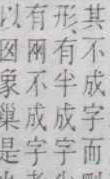 其不成字而
形、有半成字
有兩不成字
以囟象巢是